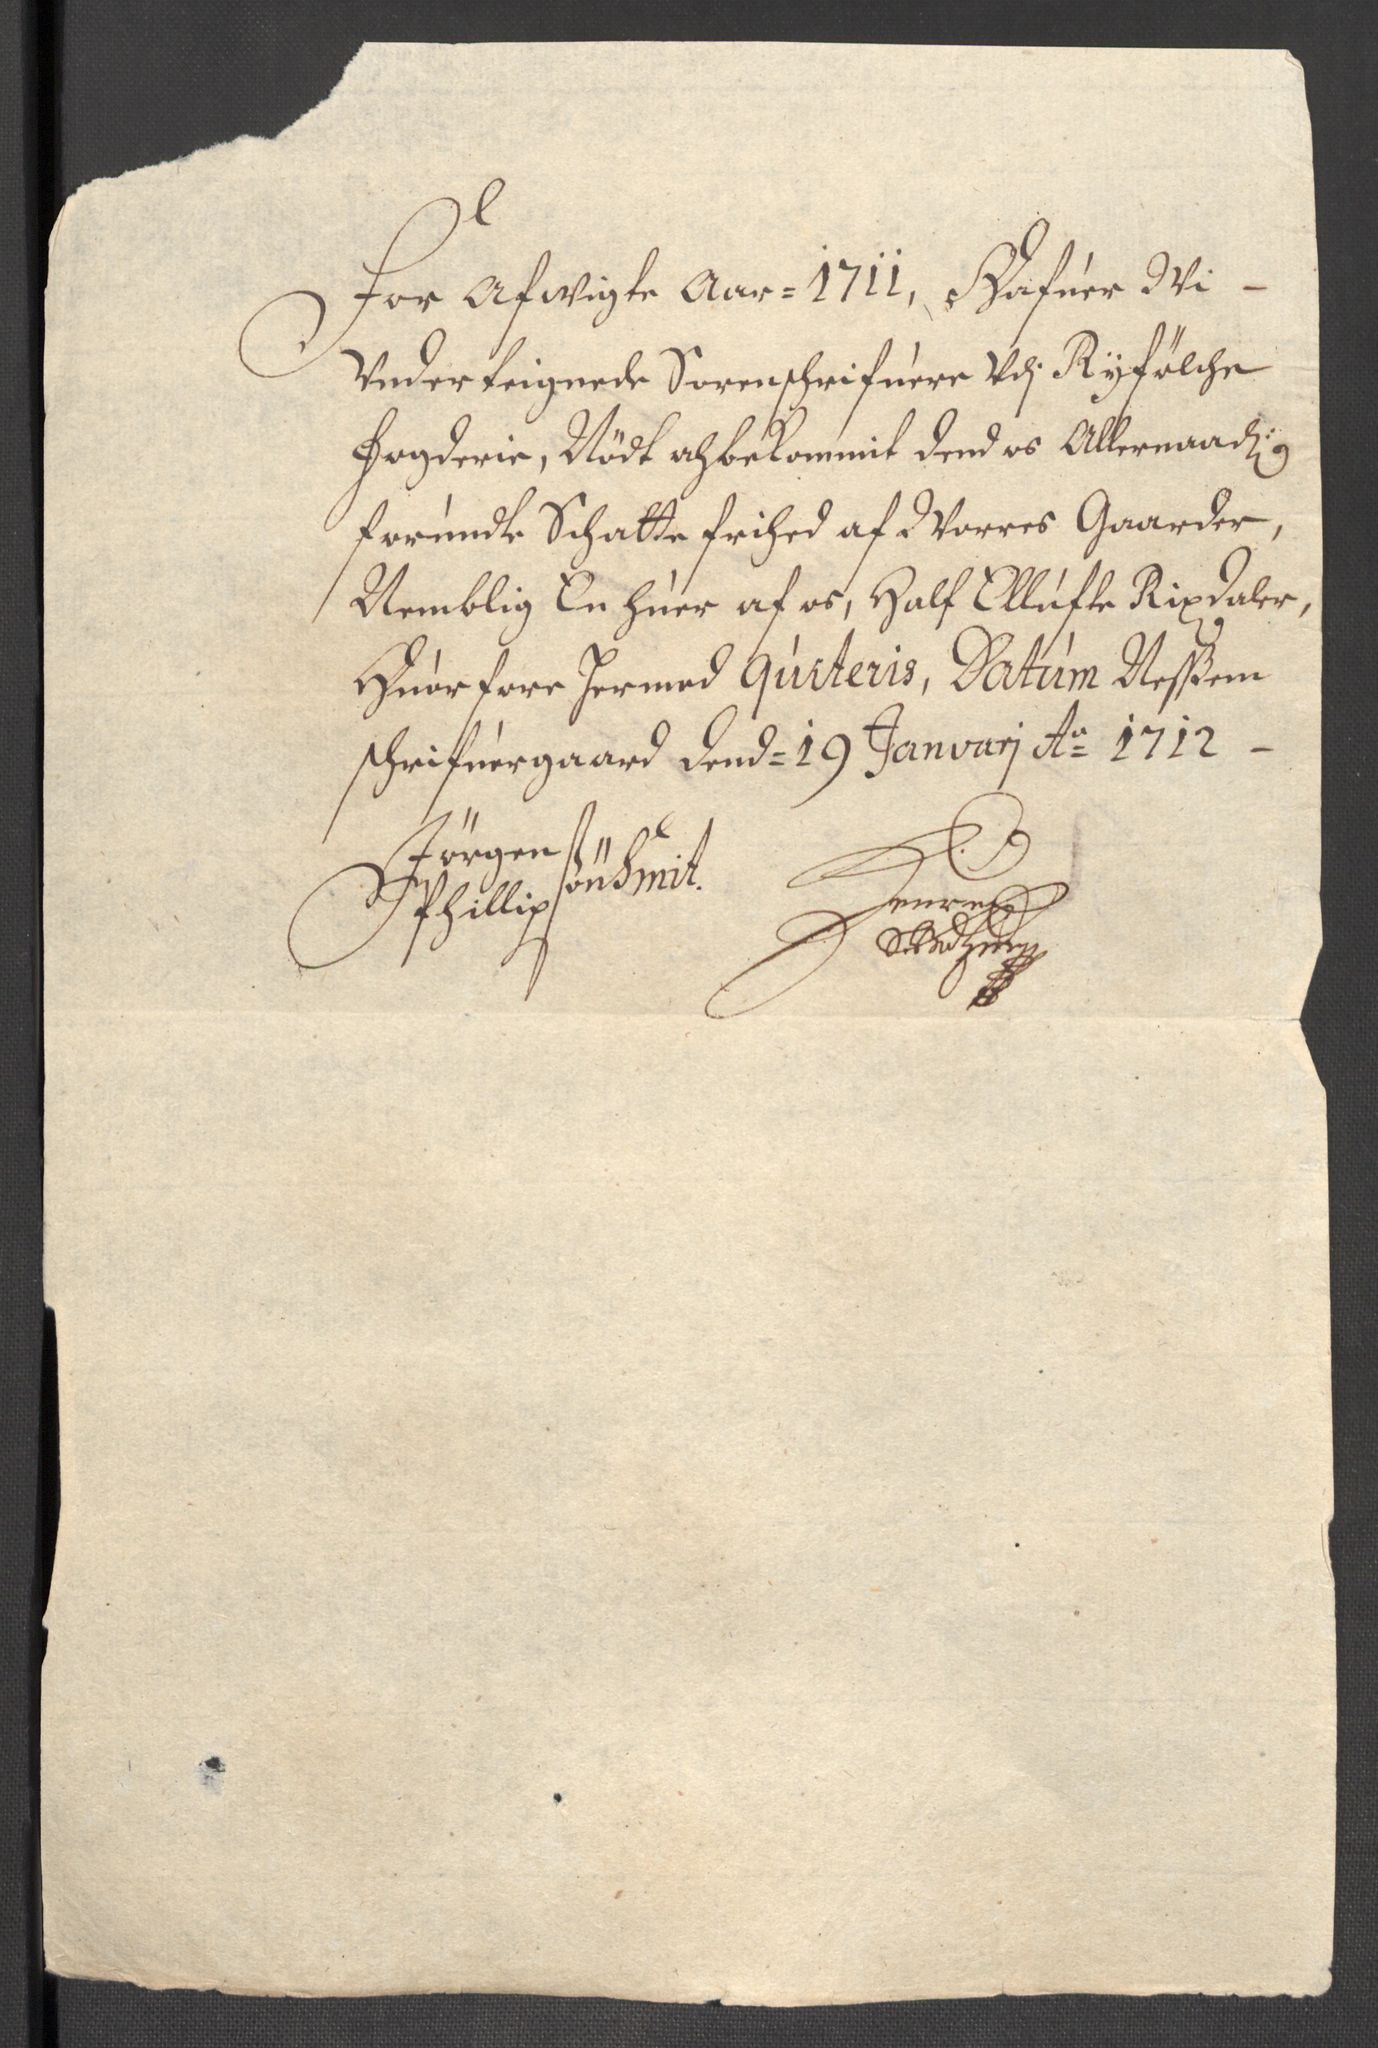 For Afwigte Aar = 1711, Hafuer Wi -
Underteignede Sorenschrifuere Udj Ryfölche
Fogderie, Nödt ahbekommit dend os Allernaadig
forundte Schatte frihed af Worres Gaarder,
Nemblig En huer af os, Half Ellufte Rixdaler,
Huorfore hermed quiteris, Datum Nessem
schrifuergaard dend = 19 Januarj Ao 1712 -
Jörgen
Phillipsön Smit.
Henrich